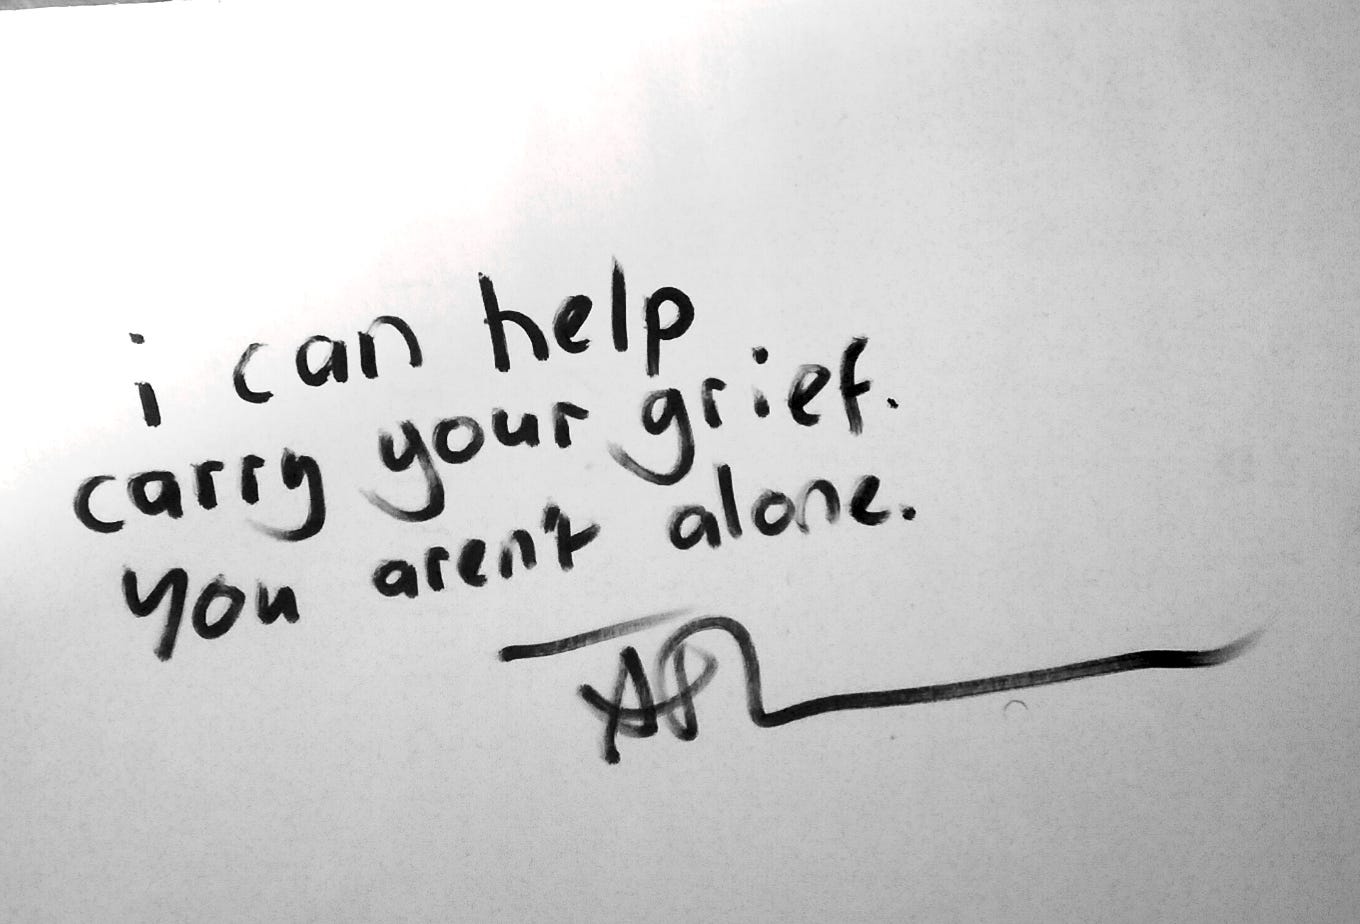 i can help
carry your grief.
you aren't alone.